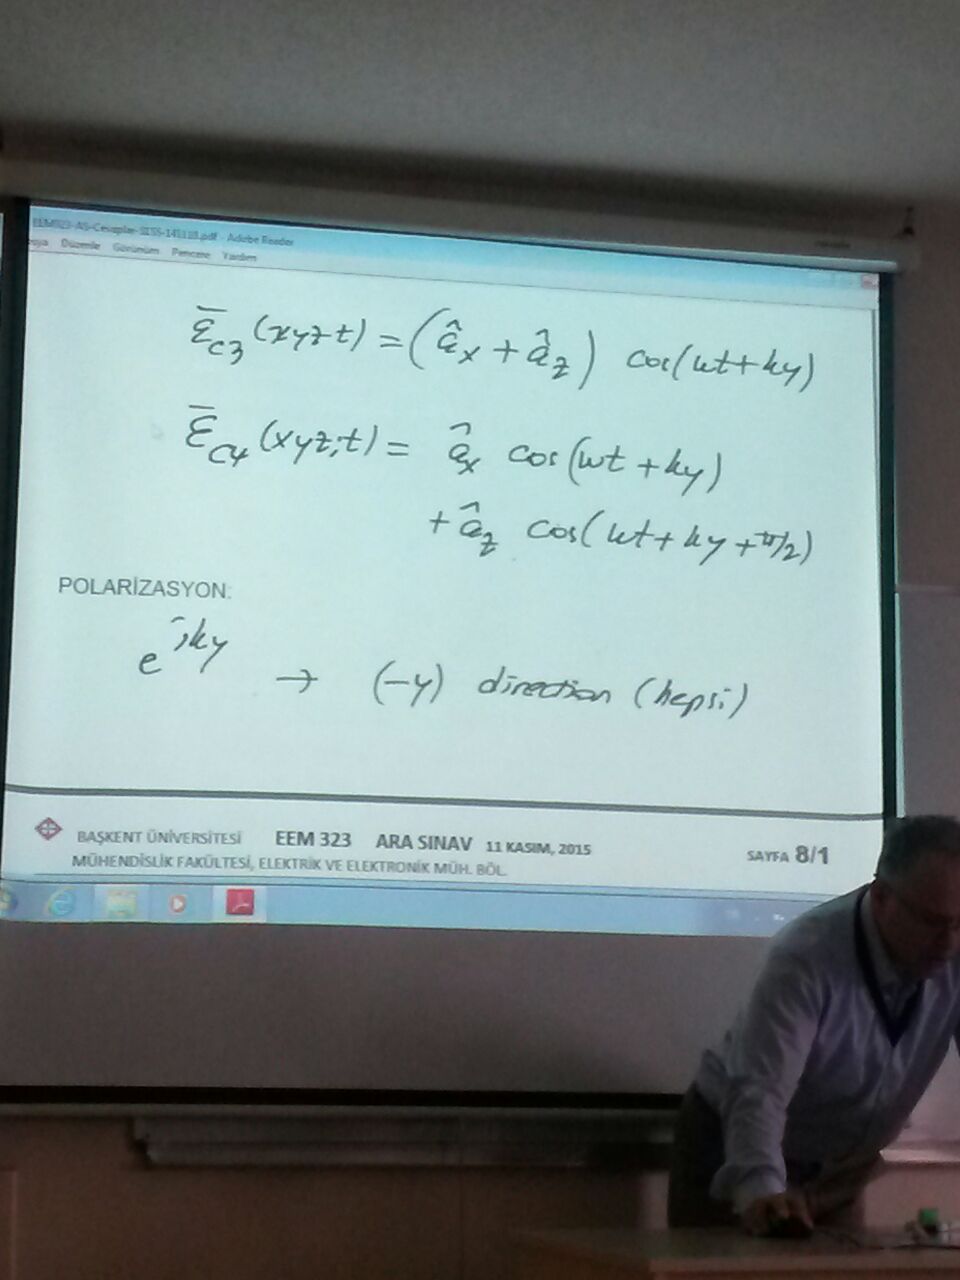 Adobe Reader
Düzenle Görünüm Pencere Yardım
Ɛ̅C3 (xyzt) = (âx + âz) cos(wt+ky)
Ɛ̅C4 (xyz;t) = âx cos(wt + ky)
+ âz cos(wt + ky + π/2)
POLARİZASYON:
e^jky → (-y) direction (hepsi)
BAŞKENT ÜNİVERSİTESİ EEM 323 ARA SINAV 11 KASIM, 2015
MÜHENDİSLİK FAKÜLTESİ, ELEKTRİK VE ELEKTRONİK MÜH. BÖL.
SAYFA 8/1